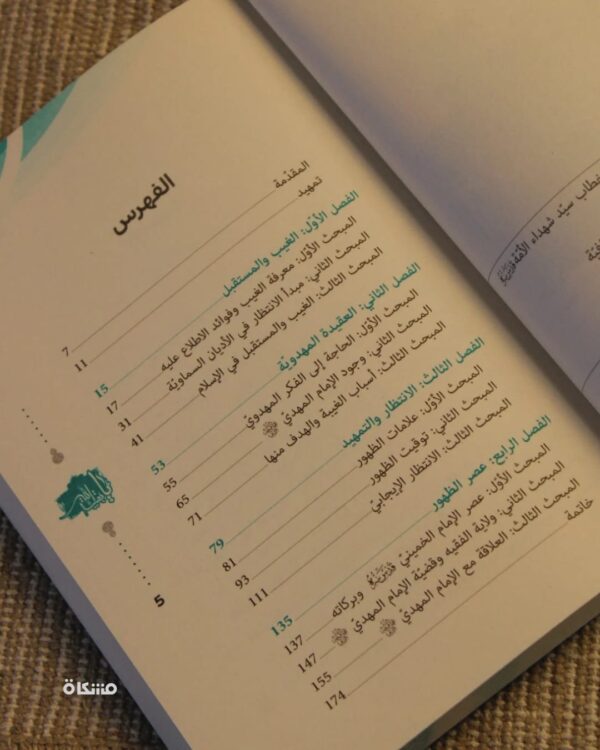 الفهرس
المقدّمة 7
تمهيد 11
الفصل الأوّل: الغيب والمستقبل 15
المبحث الأوّل: معرفة الغيب وفوائد الاطلاع عليه 17
المبحث الثاني: مبدأ الانتظار في الأديان السماويّة 31
المبحث الثالث: الغيب والمستقبل في الإسلام 41
الفصل الثاني: العقيدة المهدويّة 53
المبحث الأوّل: الحاجة إلى الفكر المهدويّ 55
المبحث الثاني: وجود الإمام المهديّ 65
المبحث الثالث: أسباب الغيبة والهدف منها 71
الفصل الثالث: الانتظار والتمهيد 79
المبحث الأوّل: علامات الظهور 81
المبحث الثاني: توقيت الظهور 93
المبحث الثالث: الانتظار الإيجابيّ 111
الفصل الرابع: عصر الظهور 135
المبحث الأوّل: عصر الإمام الخمينيّ وبركاته 137
المبحث الثاني: ولاية الفقيه وقضيّة الإمام المهديّ 147
المبحث الثالث: العلاقة مع الإمام المهديّ 155
خاتمة 174
5
خطاب سيّد شهداء الأمّة
مشكاة